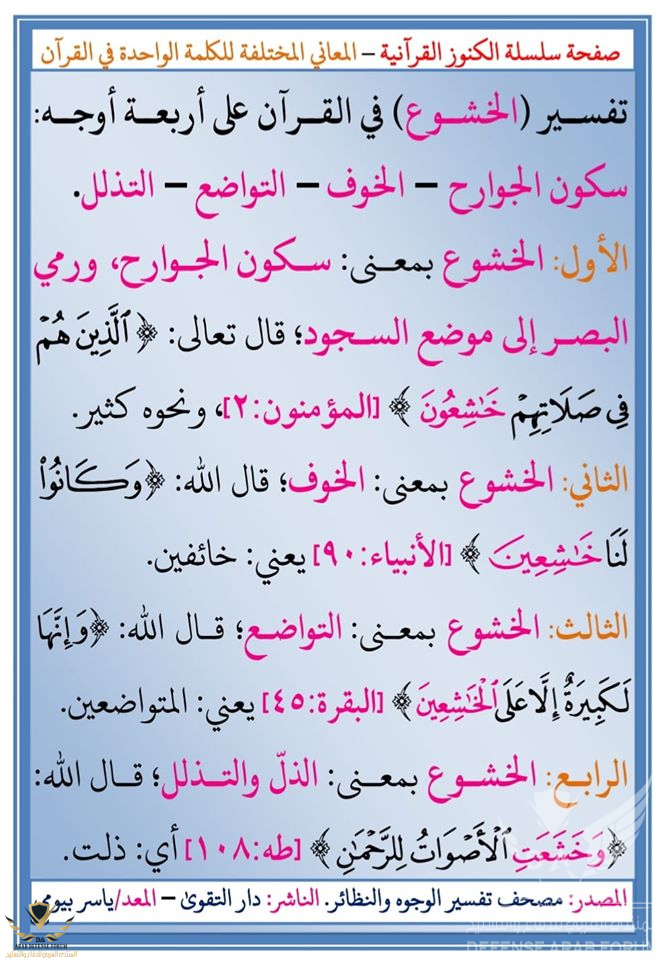 صفحة سلسلة الكنوز القرآنية – المعاني المختلفة للكلمة الواحدة في القرآن
تفسير (الخشوع) في القرآن على أربعة أوجه:
سكون الجوارح – الخوف – التواضع – التذلل.
الأول: الخشوع بمعنى: سكون الجوارح، ورمي
البصر إلى موضع السجود؛ قال تعالى: ﴿ ٱلَّذِينَ هُمۡ
فِي صَلَاتِهِمۡ خَٰشِعُونَ ﴾ [المؤمنون:٢]، ونحوه كثير.
الثاني: الخشوع بمعنى: الخوف؛ قال الله: ﴿وَكَانُواْ
لَنَا خَٰشِعِينَ ﴾ [الأنبياء:٩٠] يعني: خائفين.
الثالث: الخشوع بمعنى: التواضع؛ قال الله: ﴿وَإِنَّهَا
لَكَبِيرَةٌ إِلَّا عَلَى ٱلۡخَٰشِعِينَ﴾ [البقرة:٤٥] يعني: المتواضعين.
الرابع: الخشوع بمعنى: الذلّ والتذلل؛ قال الله:
﴿وَخَشَعَتِ ٱلۡأَصۡوَاتُ لِلرَّحۡمَٰنِ ﴾ [طه:١٠٨] أي: ذلت.
المصدر: مصحف تفسير الوجوه والنظائر. الناشر: دار التقوىٰ – المعد/ياسر بيومي
DA
ARAB DEFENSE FORUM
المنتدى العربي للدفاع والتسليح
DEFENSE ARAB FORUM